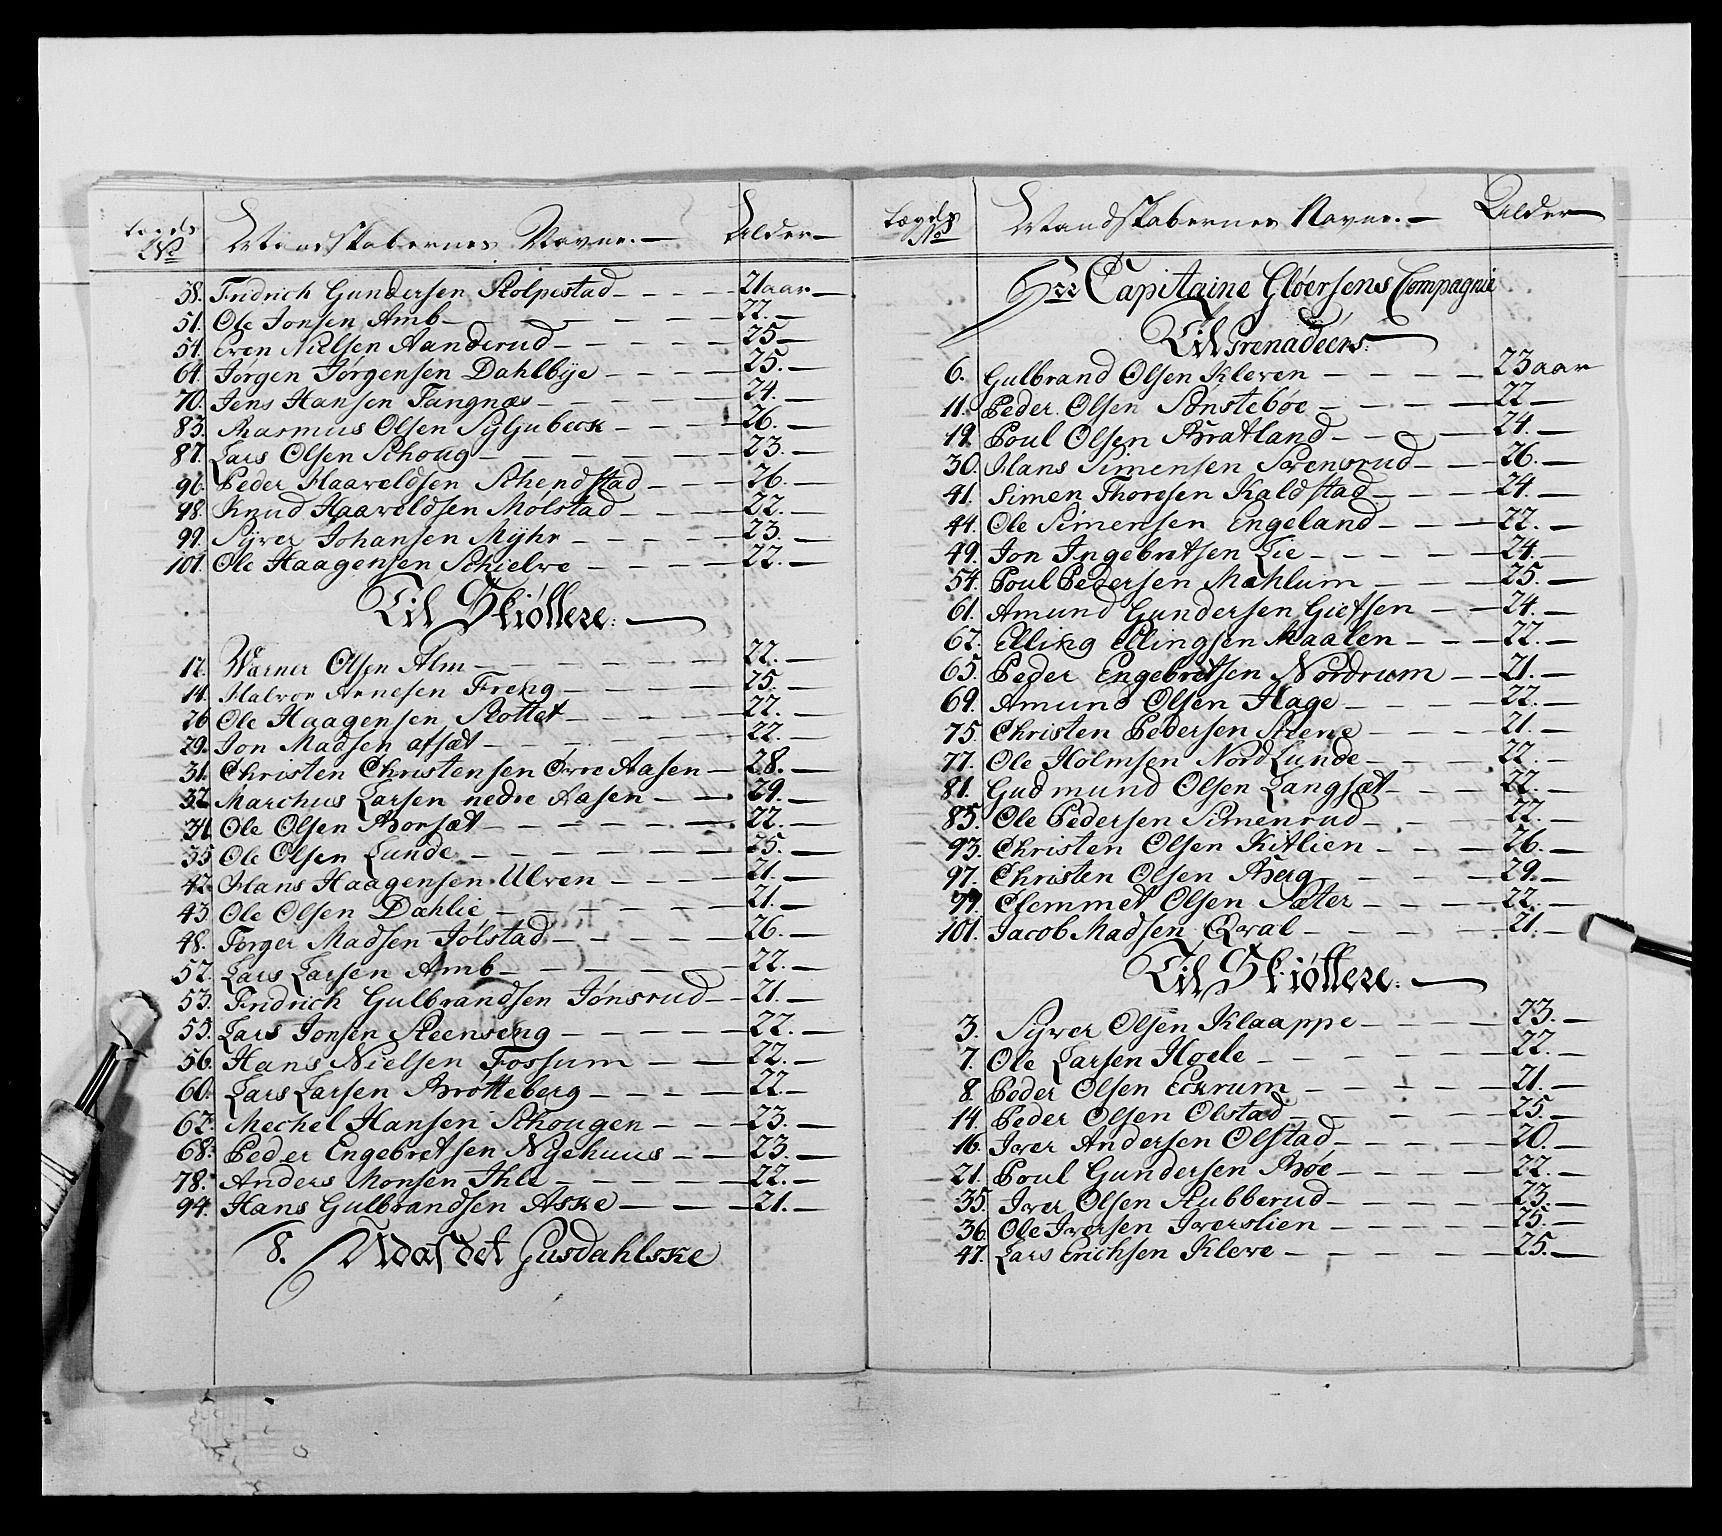 Lægds No Mandskabernes Navne. Alder
38. Fridrich Gundersen Stolpestad 21 aar
51. Ole Jonsen Amb 22.
54. Even Nielsen Aanderud 25
64. Jørgen Jørgensen Dahlbye 25.
70. Jens Hansen Tangnæs 24.
83. Rasmus Olsen Sgljubeck 26.
87. Lars Olsen Schoug 23.
96. Peder Haaveldsen Schendstad 26.
98. Knud Haaveldsen Mølstad 22.
99. Syver Johansen Mÿhr 23.
101. Ole Haagensen Schielve 22.
Til Skiøttere:
12. Warner Olsen Alm 22.
14. Halvor Arnesen Freng 25.
26 Ole Haagensen Slottet 22.
29. Jon Madsen afsæt 22.
31. Christen Christensen Øvre Aasen 28.
32 Marchus Larsen nedre Aasen 29.
34. Ole Olsen Borsæt 22.
35 Ole Olsen Lunde 25.
42. Hans Haagensen Ulven 21.
43. Ole Olsen Dæhlie 21.
48. Torger Madsen Jølstad 26.
52. Lars Larsen Amb 22.
53. Fridrich Gulbrandsen Jønsrud 21.
55. Lars Jonsen Steenseng 22.
56. Hans Nielsen Fossum 22.
60. Lars Larsen Brotteberg 22.
62. Mechel Hansen Schougen 23.
68. Peder Engebretsen Nyehuus 23.
78. Anders Monsen Ihle 22.
94. Hans Gulbrandsen Aske 21.
8. Udaf det Gusdahlske
Lægds No Mandskabernes Navne. Alder
Hrr Capitaine Gløersens Compagnie
Til Grenadeers:
6. Gulbrand Olsen Kleven 23 aar
11. Peder Olsen Sønstebøe 22
19. Poul Olsen Bratland 24.
30. Hans Simensen Sørensrud 26.
41. Simen Thoresen Kaldstad 24.
44. Ole Simensen Engeland 22.
49. Jon Ingebretsen Lie 24.
54. Poul Pedersen Mæhlum 25.
61. Amund Gundersen Gietsen 24.
62. Elling Ellingsen Maalen 22.
65. Peder Engebretsen Nordrum 21.
69. Amund Olsen Hage 22.
75. Christen Pedersen Steene 21.
77. Ole Holmsen Nord Lunde 22.
81. Gudmund Olsen Langsæt 22.
85. Ole Pedersen Simenrud 22.
93. Christen Olsen Kitlien 26.
97. Christen Olsen Berg 29.
99. Clemmet Olsen Sæter 22.
101. Jacob Madsen Qval 21.
Til Skiøttere:
3. Syver Olsen Klaappe 23.
7. Ole Larsen Hoele 22.
8. Peder Olsen Eckrum 21.
14. Peder Olsen Olstad 25.
16. Iver Andersen Olstad 20.
21. Poul Gundersen Bøe 22.
35. Iver Olsen Stubberud 23.
36. Ole Iversen Iverslien 25.
47. Lars Erichsen Kleve 25.